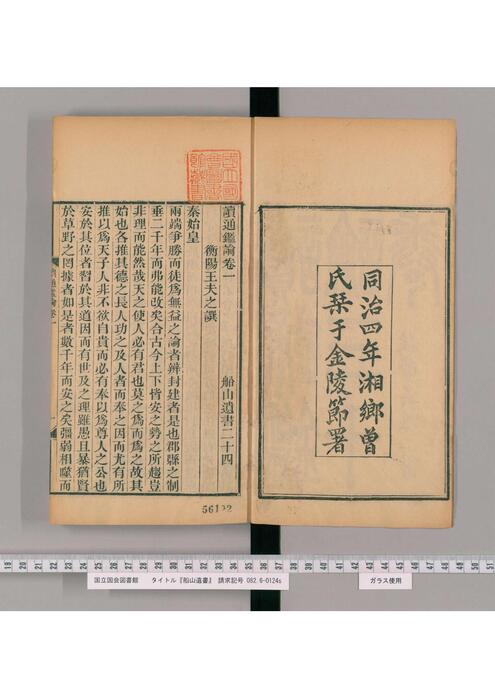 同治四年湘鄉曾
氏栞于金陵節署
國立國
會圖書
館藏書
讀通鑑論卷一
船山遺書二十四
衡陽王夫之譔
秦始皇
兩端爭勝而徒爲無益之論者辨封建者是也郡縣之制
垂二千年而弗能改矣合古今上下皆安之勢之所趨豈
非理而能然哉天之使人必有君也莫之爲而爲之故其
始也各推其德之長人功之及人者而奉之因而尤有所
推以爲天子人非不欲自貴而必有奉以爲尊人之公也
安於其位者習於其道因而有世及之理雖愚且暴猶賢
於草野之罔據者如是者數千年而安之矣彊弱相噬而
讀通鑑論卷一
一
國立国会図書館 タイトル『船山遺書』 請求記号 082.6-0124s
ガラス使用